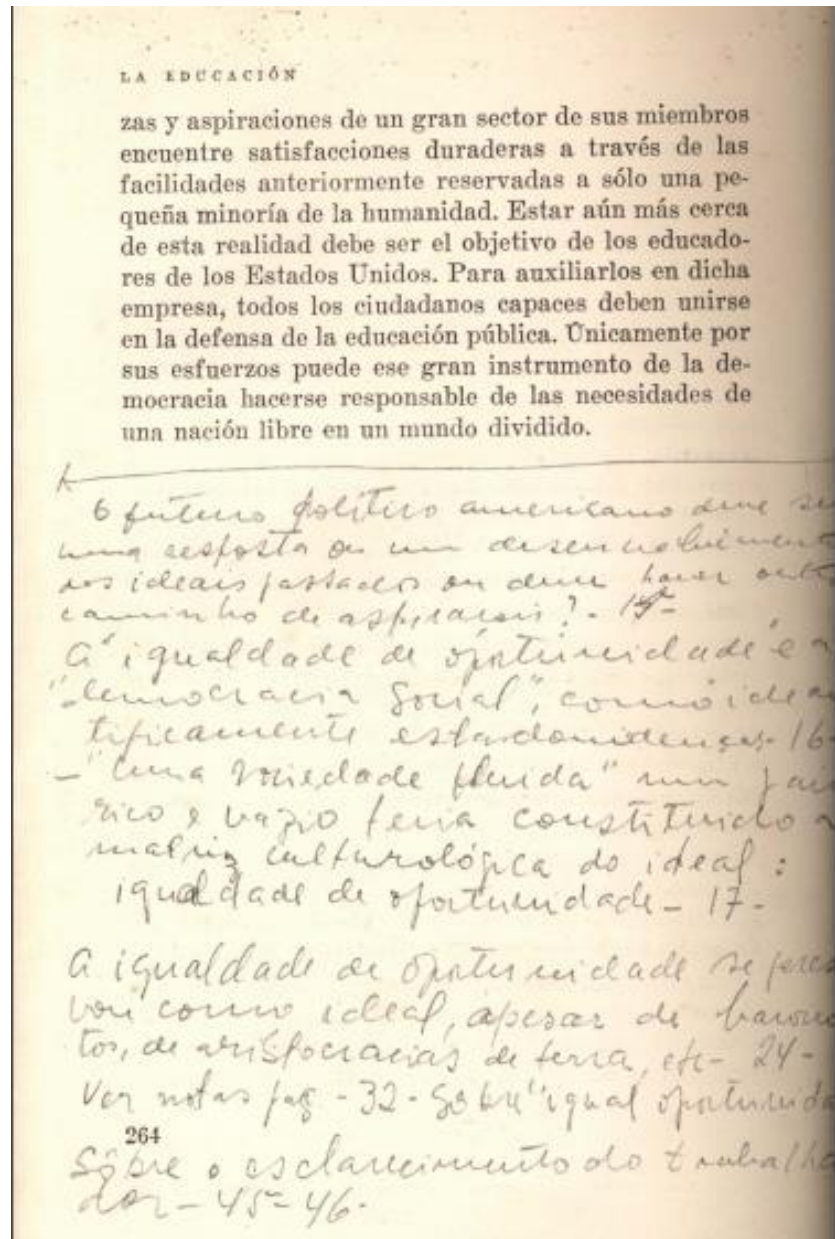 LA EDUCACIÓN
zas y aspiraciones de un gran sector de sus miembros
encuentre satisfacciones duraderas a través de las
facilidades anteriormente reservadas a sólo una pe-
queña minoría de la humanidad. Estar aún más cerca
de esta realidad debe ser el objetivo de los educado-
res de los Estados Unidos. Para auxiliarlos en dicha
empresa, todos los ciudadanos capaces deben unirse
en la defensa de la educación pública. Únicamente por
sus esfuerzos puede ese gran instrumento de la de-
mocracia hacerse responsable de las necesidades de
una nación libre en un mundo dividido.
O futuro político americano deve se
uma resposta ou um desenvolviment
dos ideais passados ou deve haver out
caminho de aspirações? - 15-
A "igualdade de oportunidade" e a
"democracia social", como idea
tificamente estadounidenses - 16-
- "Uma sociedade fluida" num
rico e vazio teria constituido a
matriz culturológica do ideal:
igualdade de oportunidade - 17-
A igualdade de oportunidade se pres
vou como ideal, apesar de
tos, de aristocracias de terra, etc - 24-
Ver notas pag - 32 - Sobre "igual oportunida
264
Sôbre o esclarecimento do trabalha
dor - 45-46-